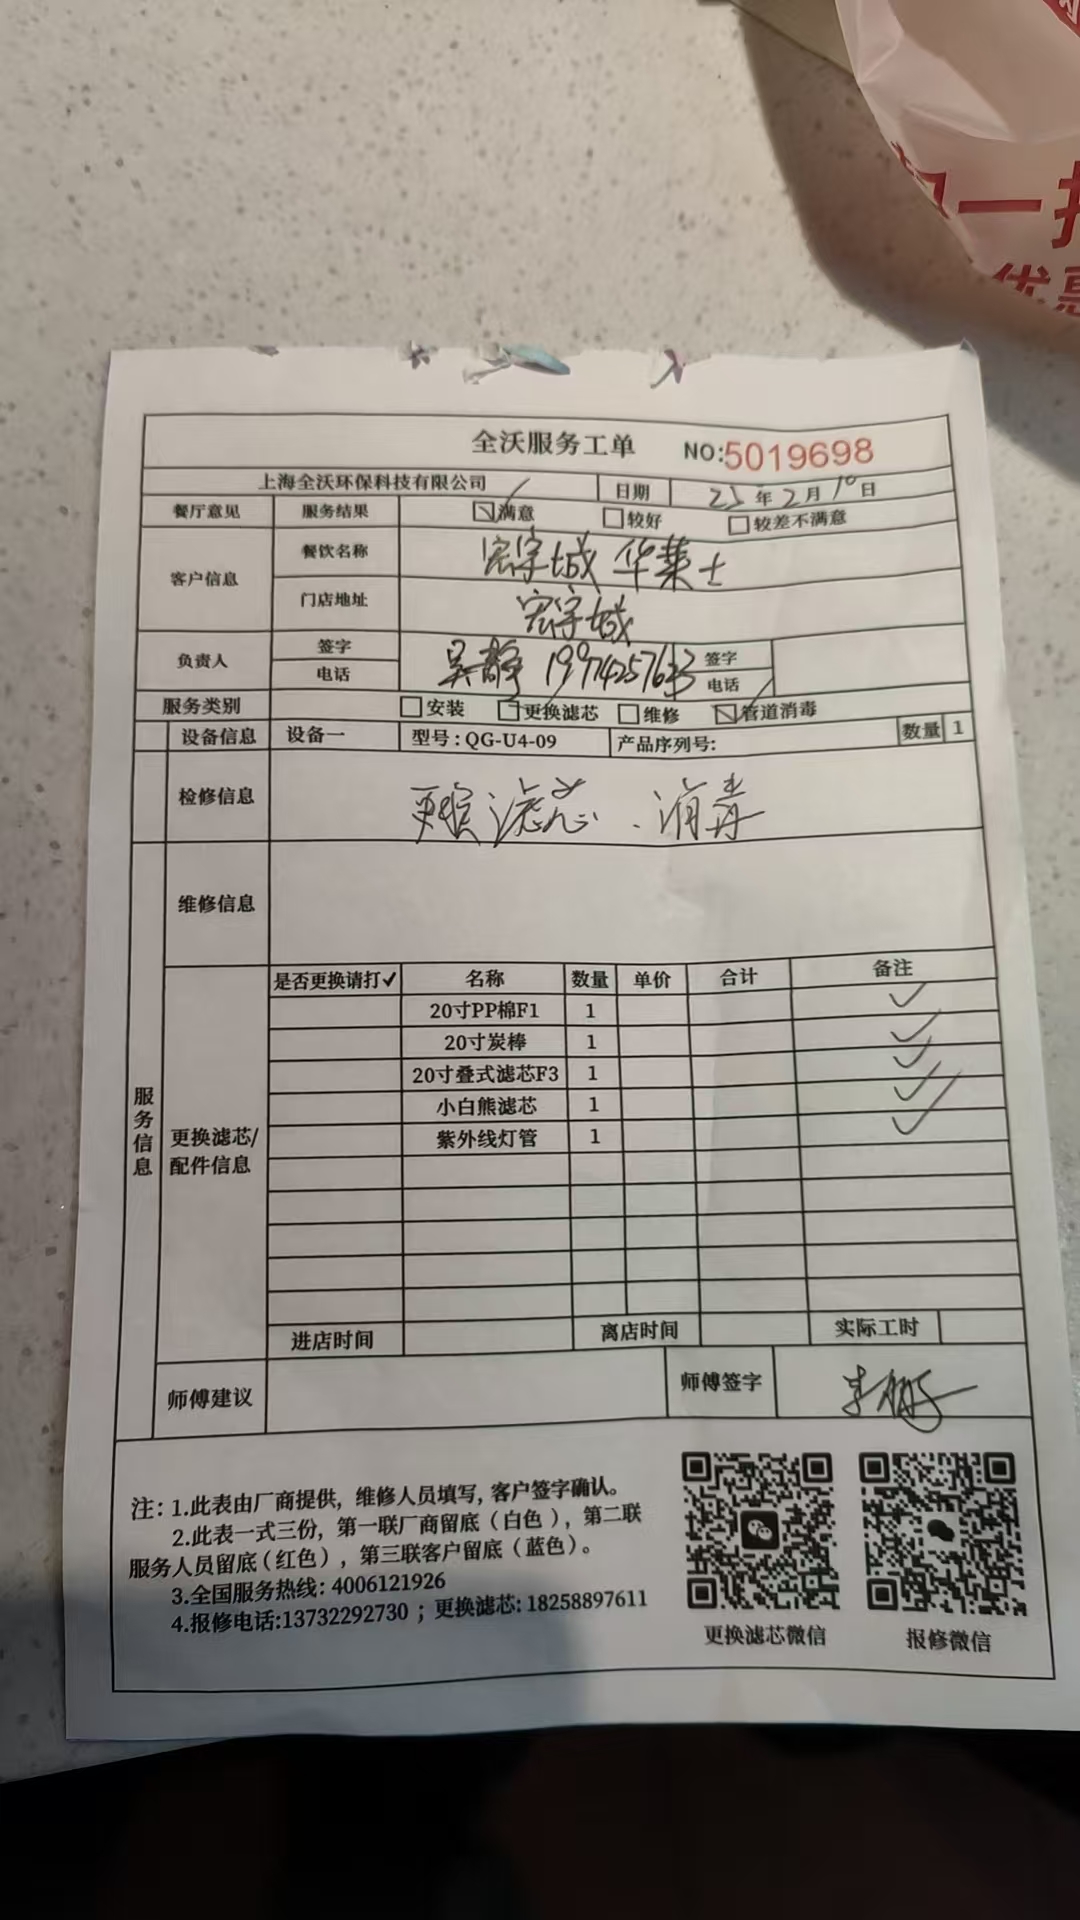 扫一扫
优惠
全沃服务工单 NO:5019698
上海全沃环保科技有限公司 日期 25年2月10日
餐厅意见 服务结果 满意 较好 较差不满意
客户信息 餐饮名称 宏宇城 华莱士
门店地址 宏宇城
负责人 签字 电话 吴静 19974257633 签字 电话
服务类别 安装 更换滤芯 维修 管道消毒
设备信息 设备一 型号:QG-U4-09 产品序列号: 数量 1
检修信息 更换滤芯、消毒
维修信息
服务信息
更换滤芯/配件信息
是否更换请打✓ 名称 数量 单价 合计 备注
20寸PP棉F1 1 ✓
20寸炭棒 1 ✓
20寸叠式滤芯F3 1 ✓
小白熊滤芯 1 ✓
紫外线灯管 1 ✓
进店时间 离店时间 实际工时
师傅建议 师傅签字
注:1.此表由厂商提供,维修人员填写,客户签字确认。
2.此表一式三份,第一联厂商留底(白色),第二联
服务人员留底(红色),第三联客户留底(蓝色)。
3.全国服务热线:4006121926
4.报修电话:13732292730;更换滤芯:18258897611
更换滤芯微信 报修微信